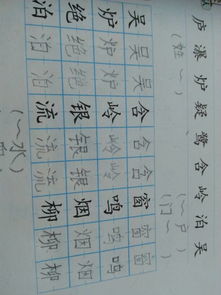 庐 瀑 炉 疑 鹭 含 岭 泊 吴
(姓～) (～户)
(门～)
吴 吴 吴 含 含 含 窗 窗 窗
炉 炉 炉 岭 岭 岭 鸣 鸣 鸣
绝 绝 绝 银 银 银 烟 烟 烟
泊 泊 泊 流 流 流 柳 柳 柳
(～水)